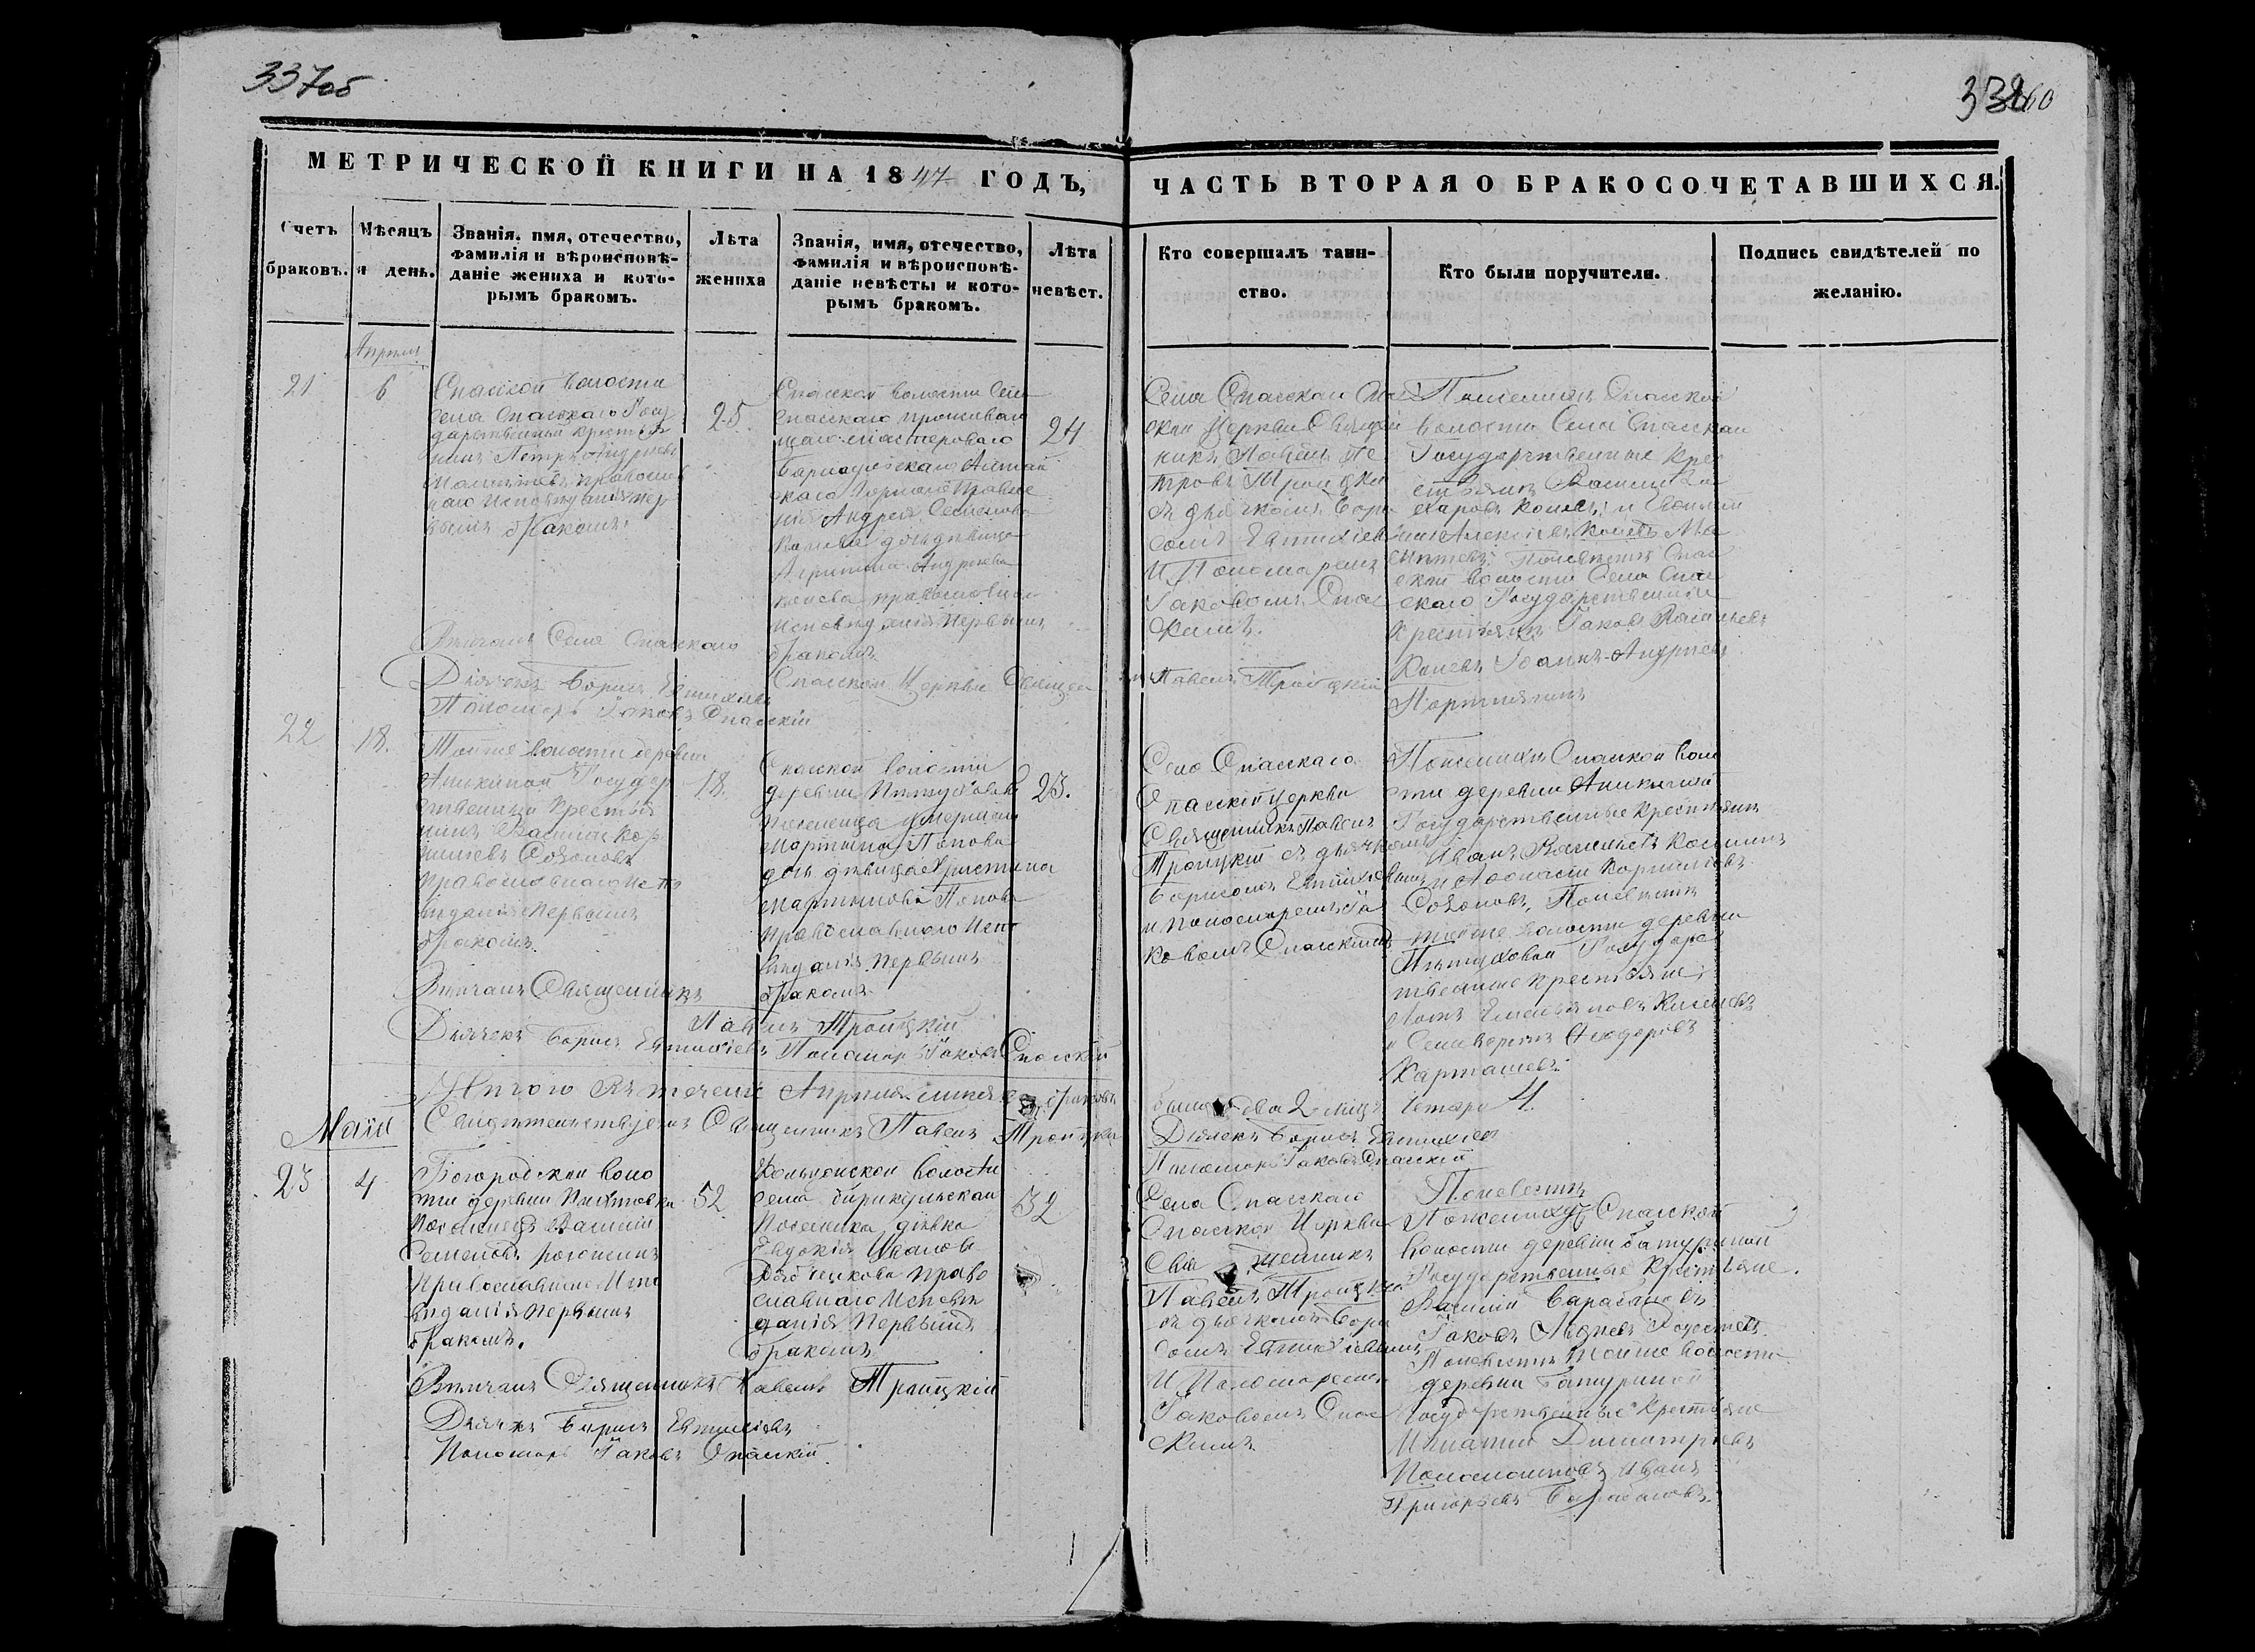 337об
33860
МЕТРИЧЕСКОЙ КНИГИ НА 1847 ГОДЪ,
ЧАСТЬ ВТОРАЯ О БРАКОСОЧЕТАВШИХСЯ.
Счетъ браковъ.
Мѣсяцъ и день.
Званія, имя, отечество,
фамилія и вѣроисповѣ-
даніе жениха и кото-
рымъ бракомъ.
Лѣта жениха
Званія, имя, отечество,
фамилія и вѣроисповѣ-
даніе невѣсты и кото-
рымъ бракомъ.
Лѣта невѣст.
Кто совершалъ таин-
ство.
Кто были поручители.
Подпись свидѣтелей по
желанію.
Апрѣля
21
6
Спаской волости
села Спаскаго Госу
дарственный крестья
нинъ Петръ Андреевъ
православ
наго исповѣданія пер
вымъ бракомъ.
25
Спаской волости села
Спаскаго проживаю
щаго мастероваго
Барнаульскаго Алтай
скаго Горнаго Правле
нія Андрея Семенова
Конева дочь дѣвица
Андреева
Конева православнаго
исповѣданія первымъ
бракомъ
24
Села Спаскаго Спа
ской Церкви Священ
никъ Павелъ Пе
тровъ Троицкій
съ дьячкомъ Бори
сомъ Евтихіев
и Пономаремъ
Іаковомъ Спас
скимъ.
По женихѣ Спаской
волости Села Спаскаго
Государственные Кре
стьяне
Коневъ и
Алексѣевъ
По невѣстѣ Спас
ской волости Села Спас
скаго Государственные
Крестьяне Іаковъ Васильевъ
Коневъ Іоаннъ Андреевъ
Портнягинъ
Вѣнчалъ Села Спаскаго
Спаской Церкви Священ
Павелъ Троицкій
Дьячекъ Борисъ Евтихіевъ
Пономарь Іаковъ Спасскій
22
18.
Тойже волости деревни
Аникиной Государ
ственный Крестья
нинъ Василій Кор
ниловъ Созоновъ
православнаго испо
вѣданія первымъ
бракомъ.
18.
Спаской волости
деревни Пѣтуховой
поселенца умершаго
Мартына Попова
дочь дѣвица Христина
Мартынова Попова
православнаго испо
вѣданія первымъ
бракомъ
23.
Села Спаскаго
Спаской Церкви
Священникъ Павелъ
Троицкій съ дьячкомъ
Борисомъ Евтихіевымъ
и пономаремъ Іа
ковомъ Спаскимъ
По женихѣ Спаской воло
сти деревни Аникиной
Государственные Крестьяне
Иванъ Васильевъ
и Корниловъ
Созоновъ, По невѣстѣ
тойже волости деревни
Пѣтуховой Государс
твенные крестьяне
Емельяновъ Киселевъ
и Феодоровъ
Карташевъ.
Вѣнчалъ Священникъ
Павелъ Троицкій
Дьячекъ Борисъ Евтихіевъ Пономарь Іаковъ Спаскій
Итого въ теченіе Апрѣля браковъ
было два 2 лицъ четыре 4.
Свидѣтельствуемъ Священникъ Павелъ Троицкій
Дьячекъ Борисъ Евтихіевъ
Пономарь Іаковъ Спаскій
Маія
23
4
Богородской воло
сти деревни Пихтовки
поселенецъ Василій
Семеновъ
православнаго испо
вѣданія первымъ
бракомъ.
52
волости
села
дѣвка
Евдокія Иванова
право
славнаго исповѣ
данія первымъ
бракомъ
32
Села Спаскаго
Спаской Церкви
Священникъ
Павелъ Троицкій
съ дьячкомъ Бори
сомъ Евтихіевымъ
и Пономаремъ
Іаковомъ Спас
скимъ
По невѣстѣ
По женихѣ Спаской
волости деревни Батуриной
Государственные крестьяне.
Василій Барабановъ
Іаковъ
По невѣстѣ тойже волости
деревни Батуриной
Государственные Крестьяне
Игнатій Димитріевъ
Иванъ
Григорьевъ Барабановъ.
Вѣнчалъ Священникъ Павелъ Троицкій
Дьячекъ Борисъ Евтихіевъ
Пономарь Іаковъ Спаскій